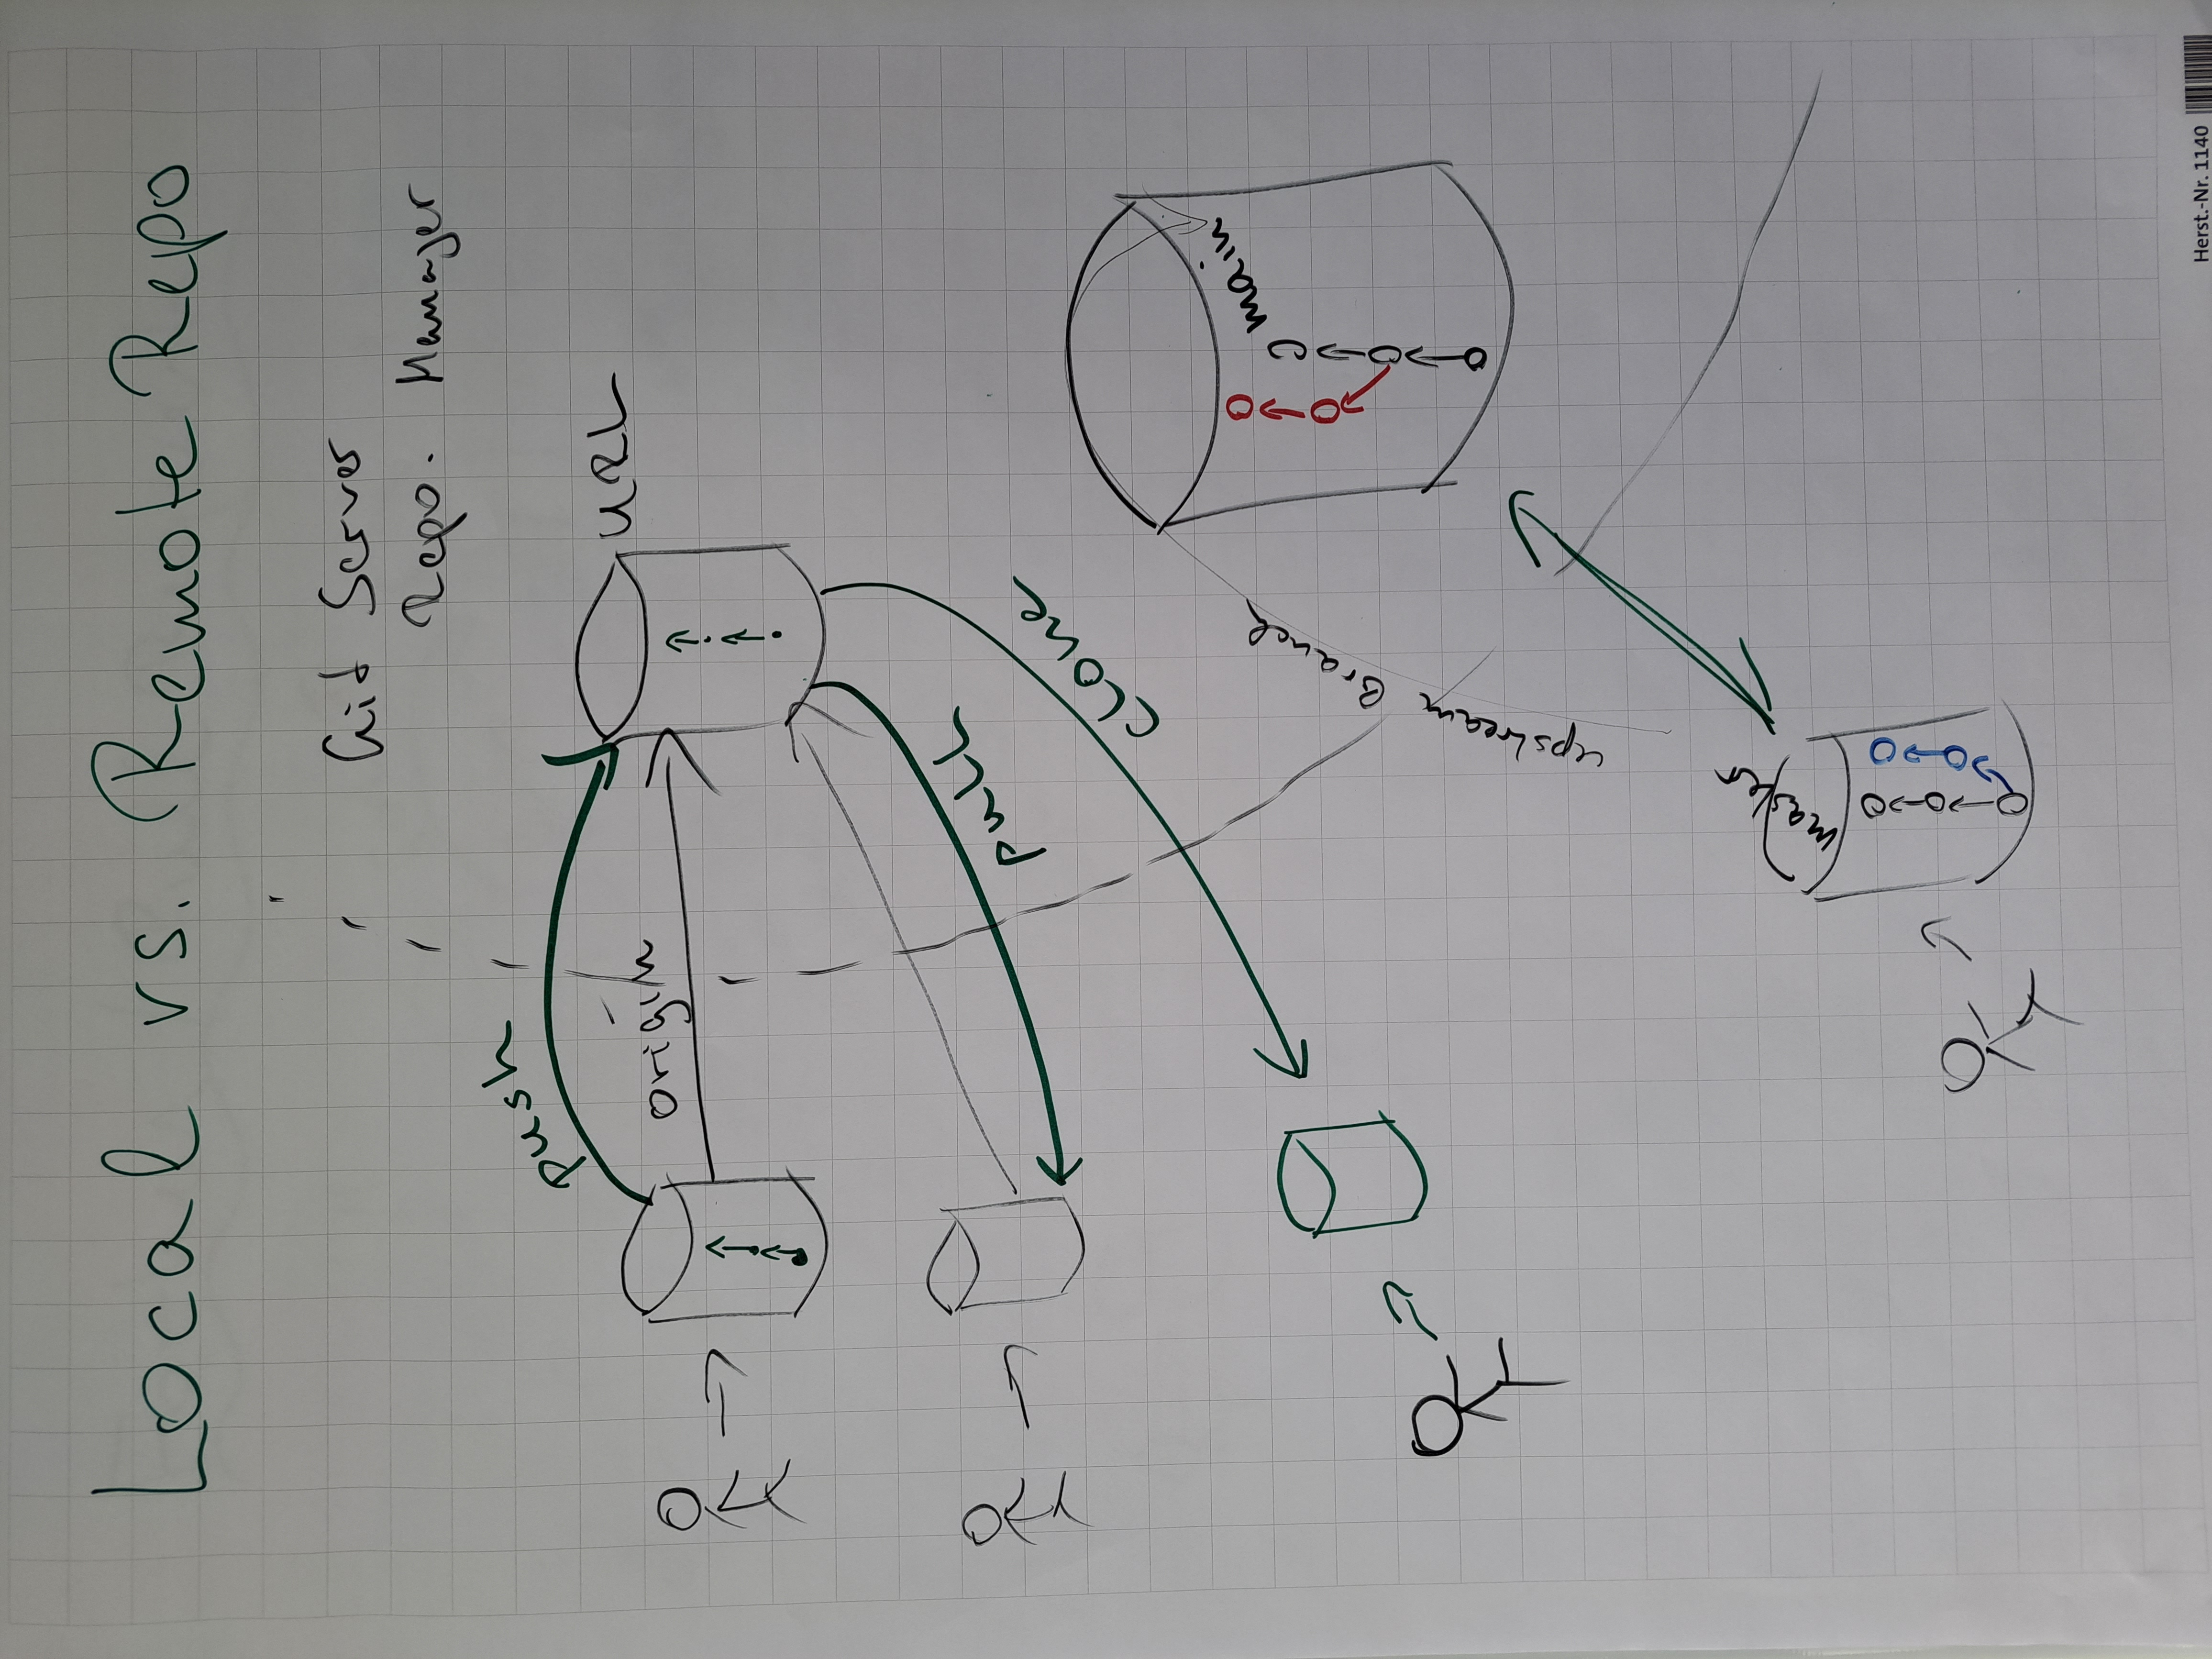 Local vs. Remote Repo
Git Server
Repo. Manager
push
origin
URL
pull
clone
main
upstream Branch
master
Herst.-Nr. 1140